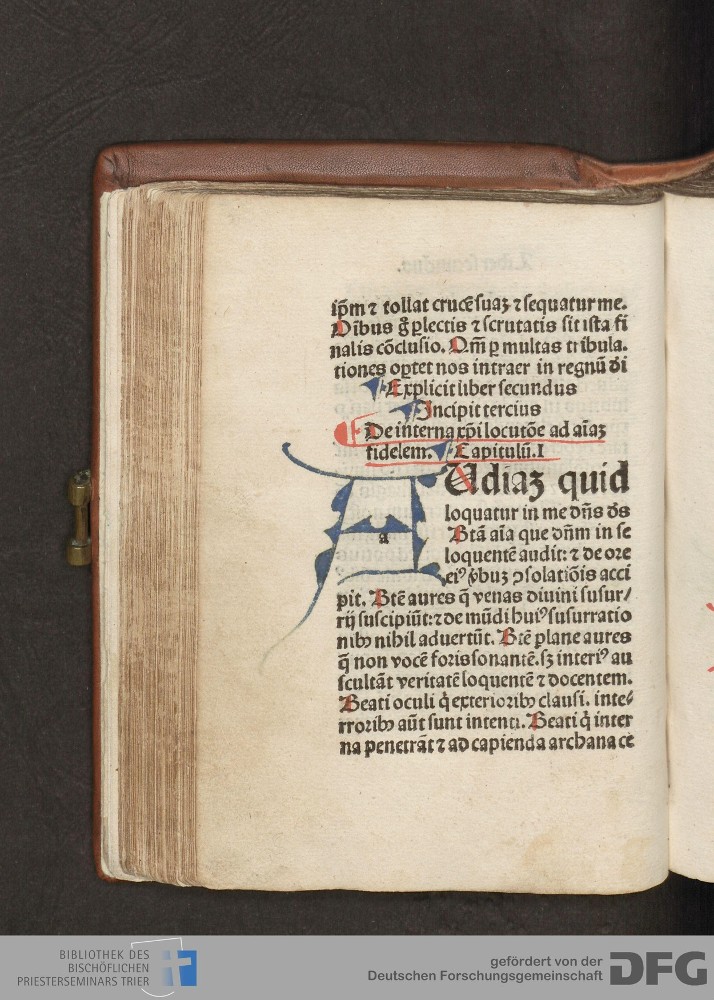 ip̄m ⁊ tollat crucē suaꝫ ⁊ sequatur me.
Oībus g̊ ꝑlectis ⁊ scrutatis sit ista fi
nalis cōclusio. Qm̄ ꝑ multas tribula-
tiones oꝑtet nos intraer in regnū di
Explicit liber secundus
Incipit tercius
De interna xp̄i locutōe ad aīaꝫ
fidelem. Capitulū. I
AUdiaꝫ quid
loquatur in me dn̄s ds
Btā aīa que dn̄m in se
loquentē audit: ⁊ de ore
a
eiꝰ v̓buꝫ ꝯsolatiōis acci
pit. Btē aures q̄ venas diuini susur/
rij suscipiūt: ⁊ de mūdi huiꝰ susurratio
nibꝰ nihil aduertūt. Btē plane aures
q̄ non vocē foris sonantē. sꝫ interiꝰ au
scultāt veritatē loquentē ⁊ docentem.
Beati oculi q̓ exterioribꝰ clausi. inte/
rroribꝰ aūt sunt intenti. Beati q̓ inter
na penetrāt ⁊ ad capienda archana ce
BIBLIOTHEK DES
BISCHÖFLICHEN
PRIESTERSEMINARS TRIER
gefördert von der
Deutschen Forschungsgemeinschaft
DFG